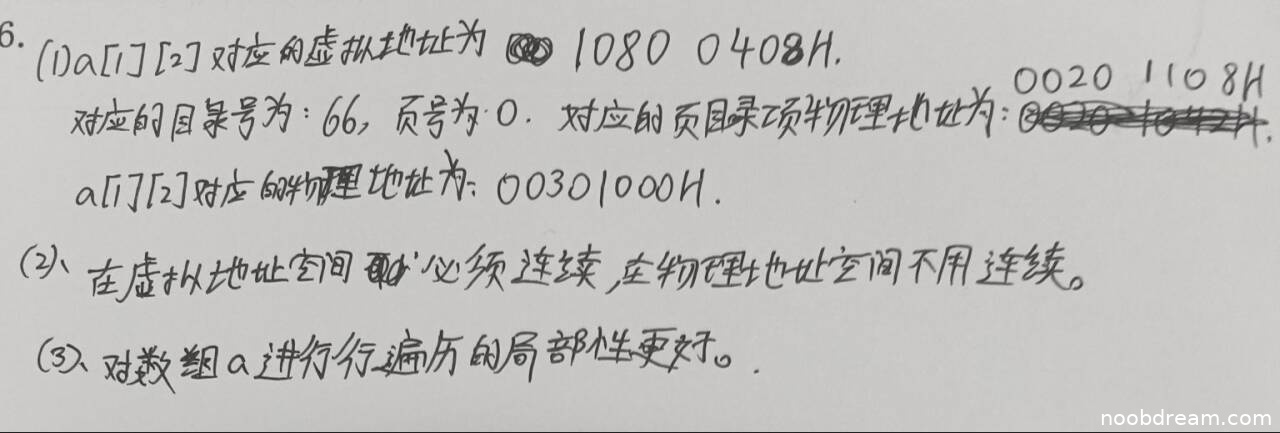 6.
(1) a[1][2] 对应的虚拟地址为 1080 0408H.
0020 1108H
对应的目录号为：66，页号为：0. 对应的页目录项物理地址为：
a[1][2]对应的物理地址为：00301000H.
(2)、在虚拟地址空间必须连续,在物理地址空间不用连续。
(3)、对数组a进行行遍历的局部性更好。.
noobdream.com